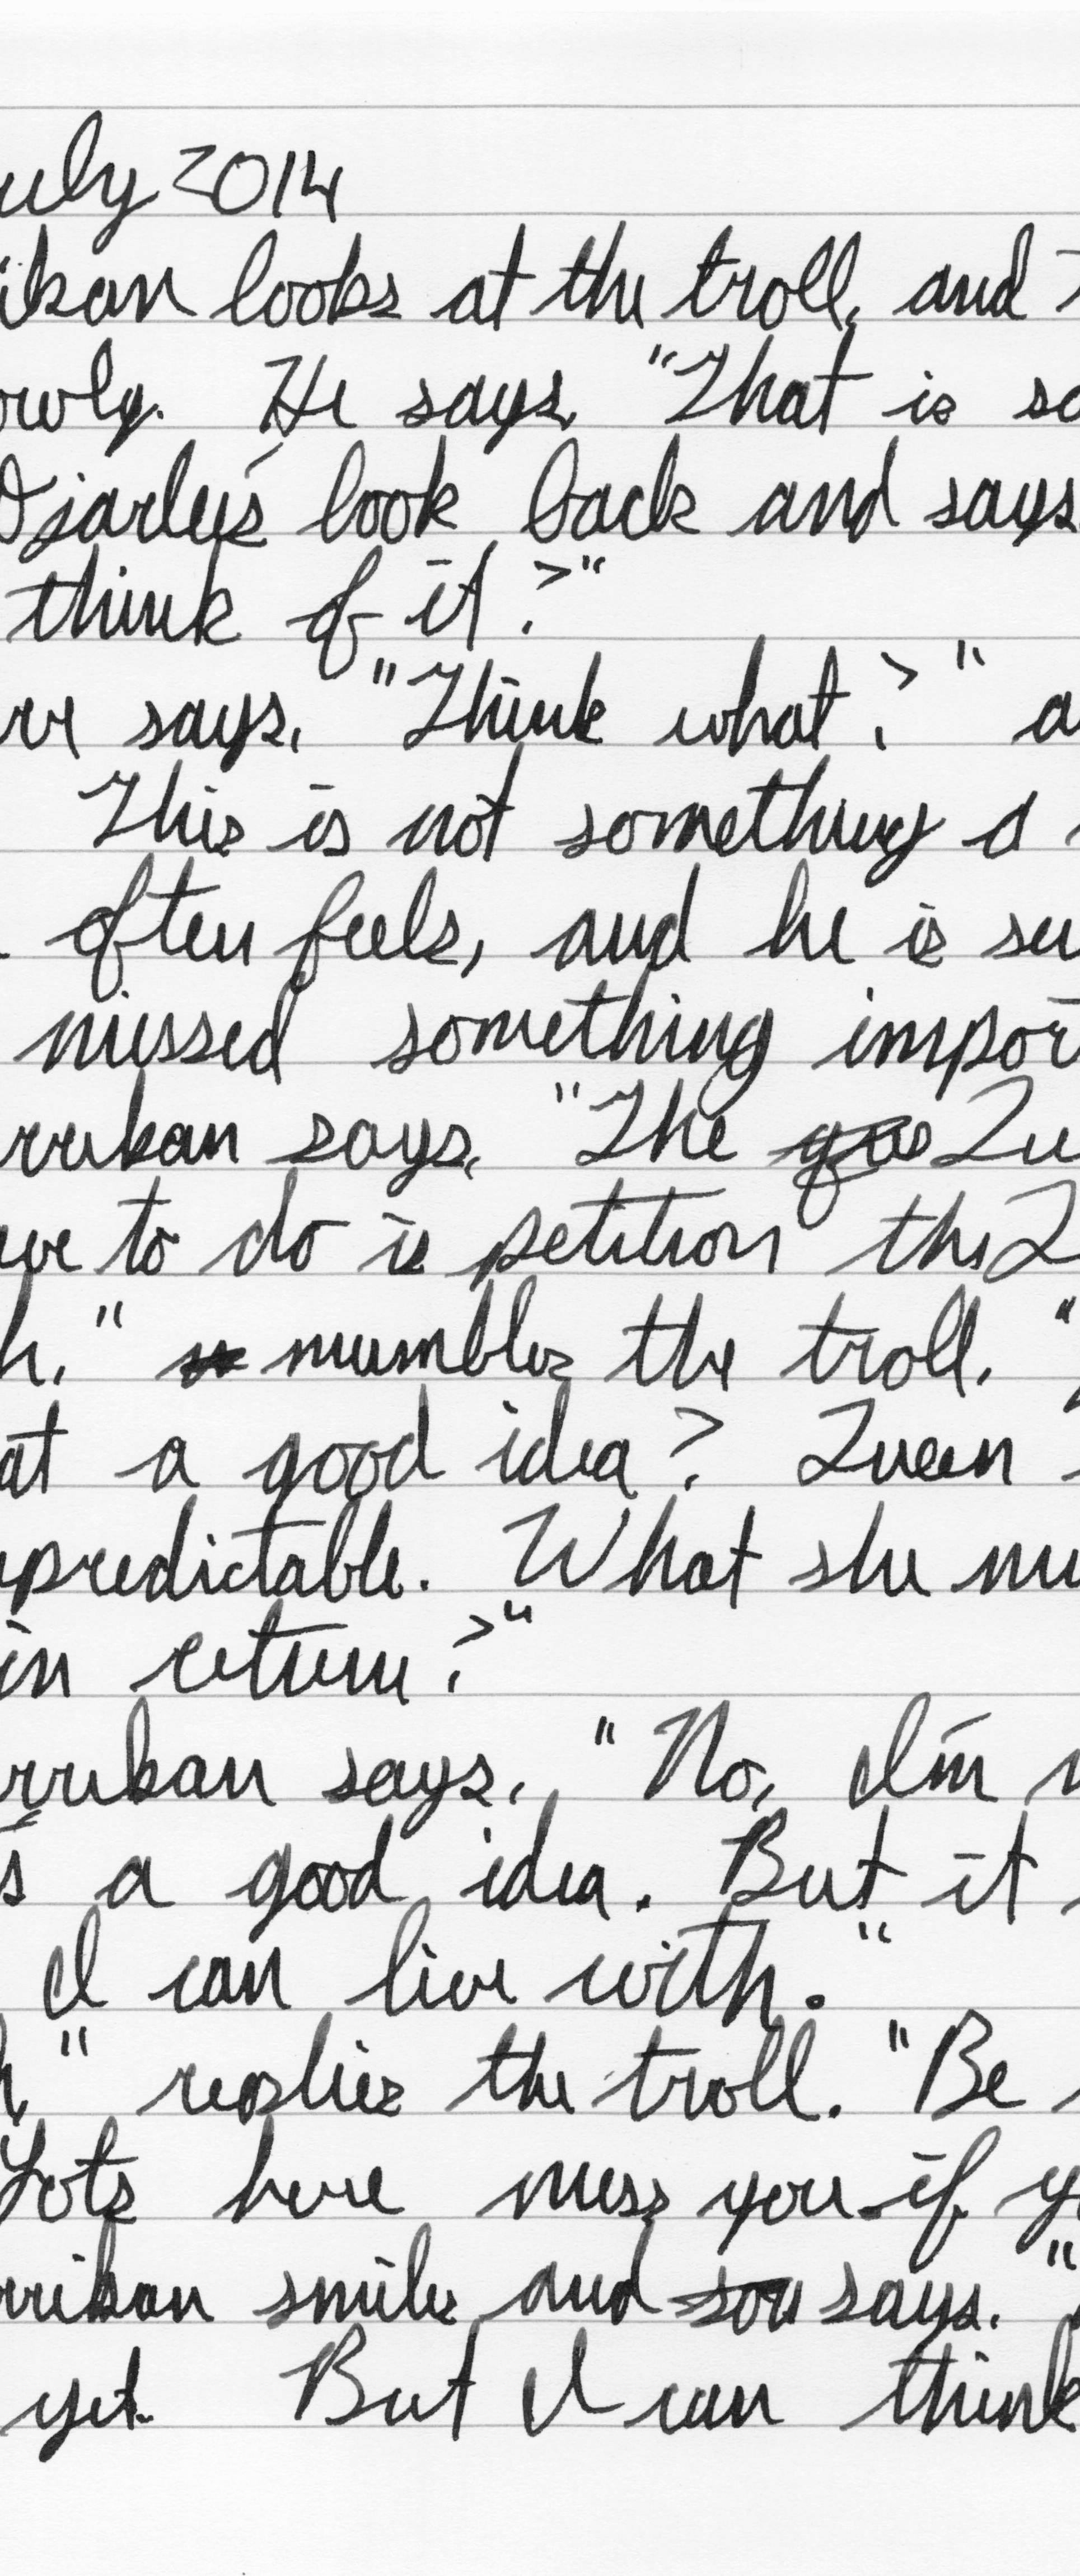 uly 2014
ikan looks at the troll, and
owly. He says, "That is so
Djarley's look back and says
think of it?"
rr says, "Think what?" a
This is not something a
often feels, and he is su
missed something impor
rrikan says, "The Qu
ve to do is petition the Q
h," mumbles the troll. "
at a good idea? Queen
predictable. What she mi
in return?"
rrikan says, "No, I'm n
s a good idea. But it
I can live with."
h," replies the troll. "Be
Lots here miss you if y
rrikan smiles and says, "
yet. But I can think